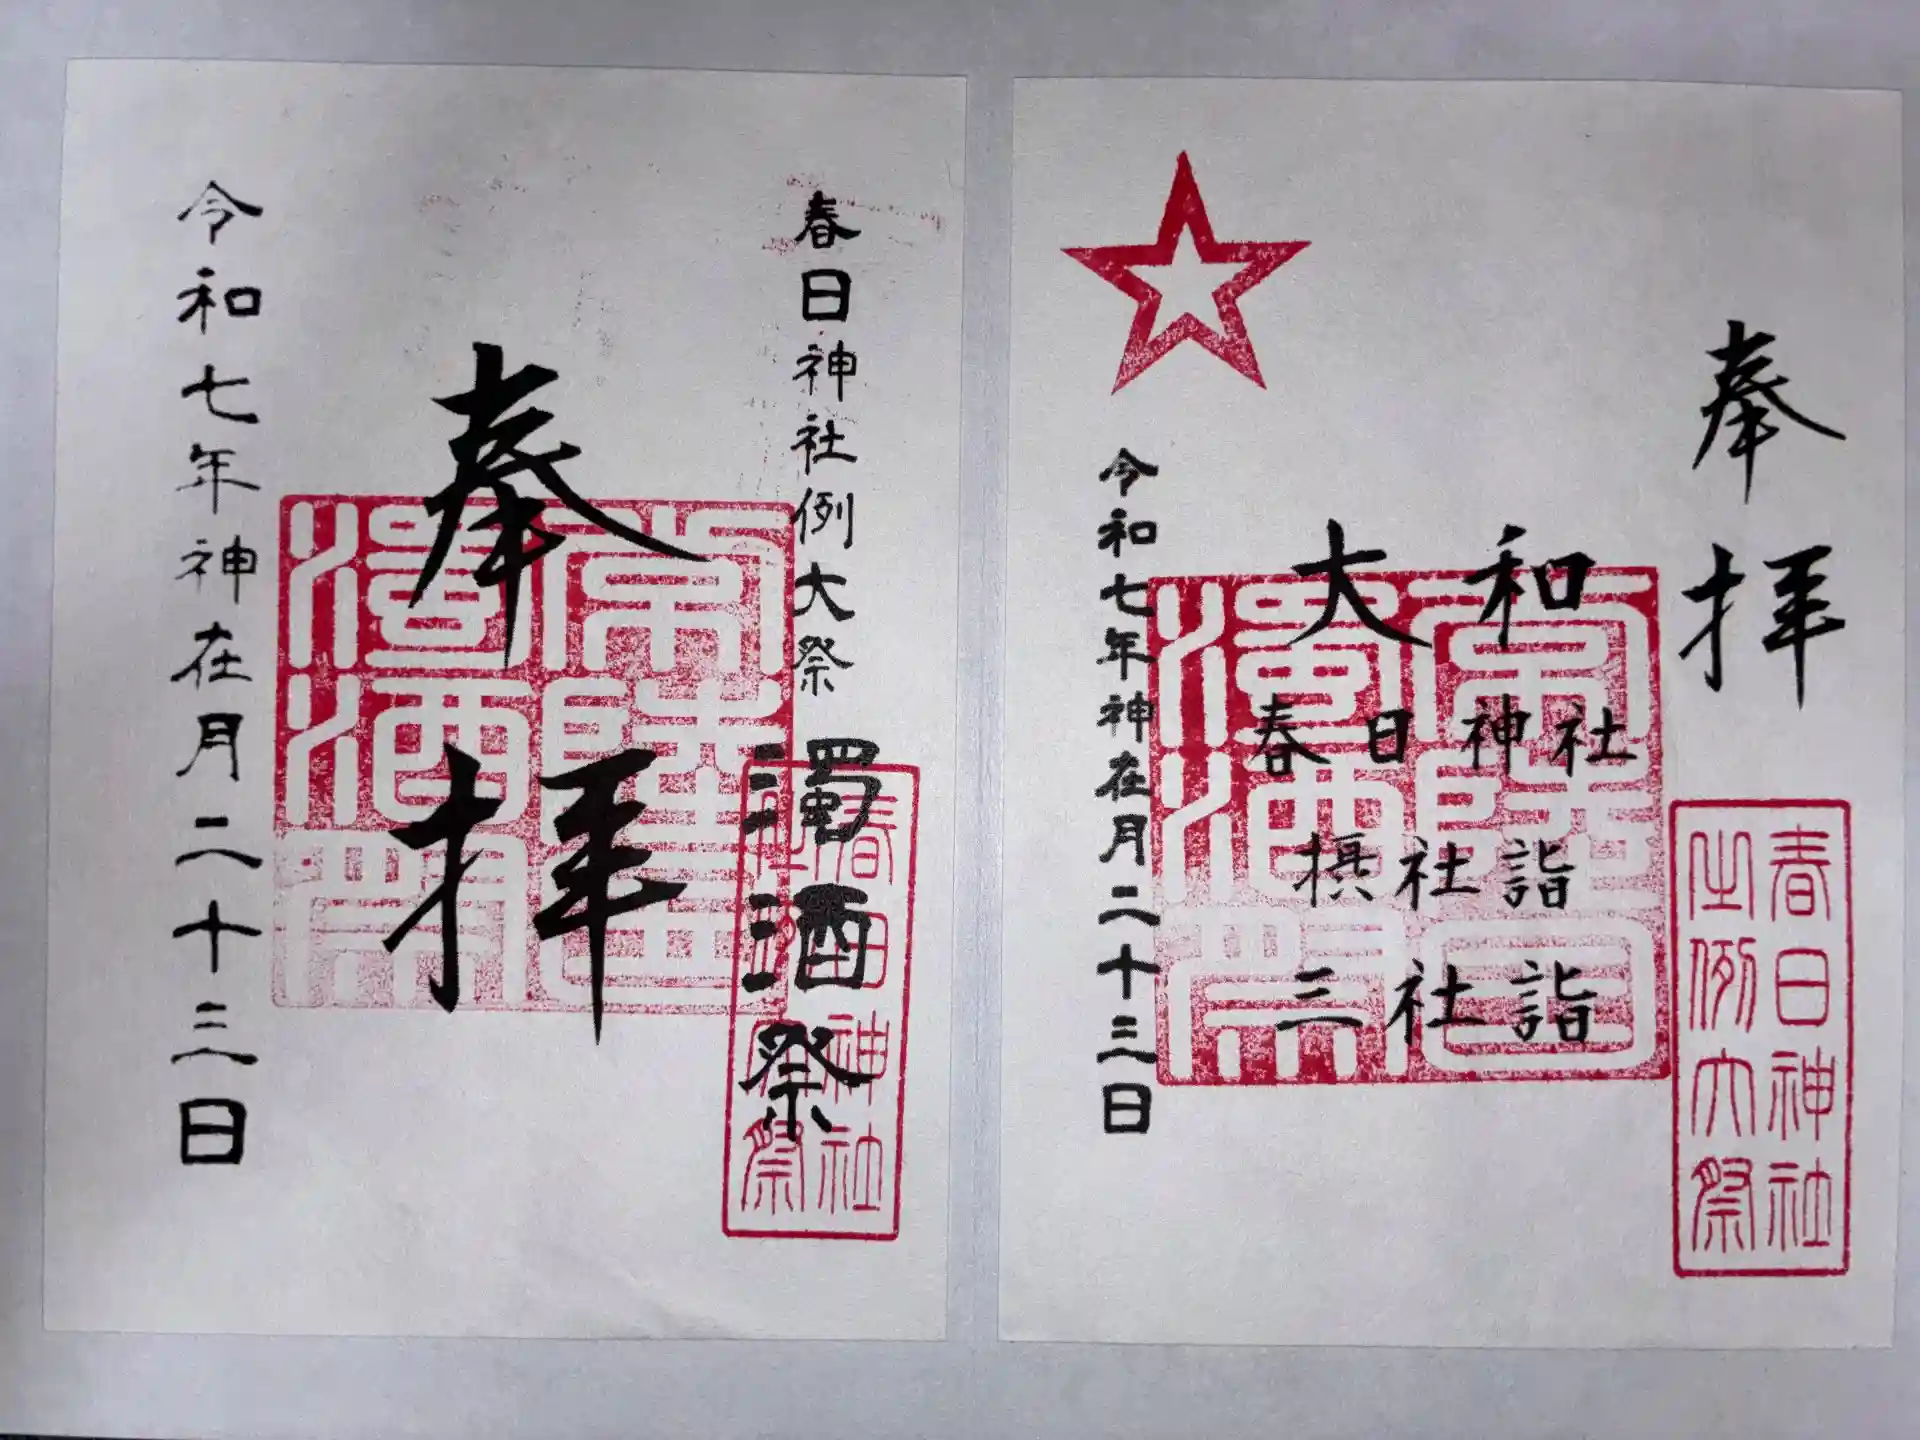 奉拝
春日神社
之例大祭
大和
春日神社
摂社詣
三社詣
常陸国
濁酒祭
令和七年神在月二十三日
春日神社例大祭 濁酒祭
春日神社
之例大祭
奉拝
濁酒祭
令和七年神在月二十三日